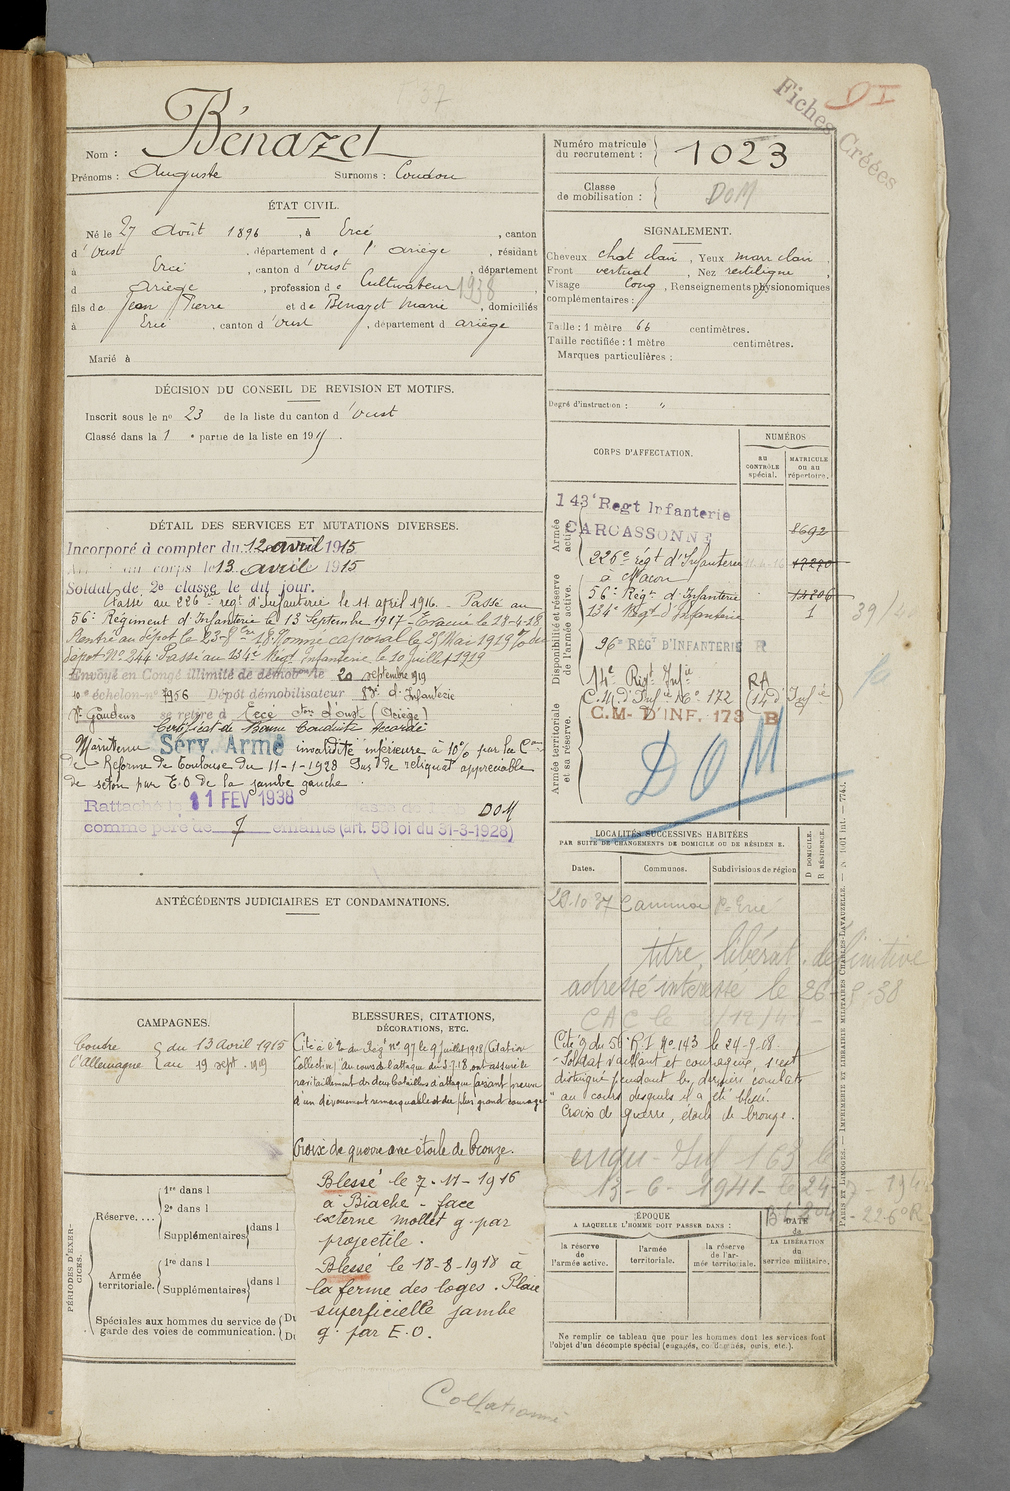 Fiches Créées
DI
Bénazet
Nom :
Prénoms : Auguste Surnoms : Coudou
Numéro matricule du recrutement : 1023
Classe de mobilisation : DOM
ÉTAT CIVIL.
Né le 27 Août 1896, à Ercé, canton
d'Oust, département de l'Ariège, résidant
à Ercé, canton d'Oust, département
d Ariège, profession de Cultivateur 1938
fils de Jean Pierre et de Bénazet Marie, domiciliés
à Ercé, canton d'Oust, département d Ariège
Marié à
SIGNALEMENT.
Cheveux chat clair, Yeux marr clair,
Front vertical, Nez rectiligne,
Visage long, Renseignements physionomiques
complémentaires :
Taille : 1 mètre 66 centimètres.
Taille rectifiée : 1 mètre centimètres.
Marques particulières :
Degré d'instruction : "
DÉCISION DU CONSEIL DE REVISION ET MOTIFS.
Inscrit sous le no 23 de la liste du canton d'Oust
Classé dans la 1e partie de la liste en 1915.
DÉTAIL DES SERVICES ET MUTATIONS DIVERSES.
Incorporé à compter du 12 avril 1915
au corps le 13 avril 1915
Soldat de 2e classe le dit jour.
Passé au 226me régt d'Infanterie le 11 avril 1916. Passé au
56e Régiment d'Infanterie le 13 Septembre 1917 - Evacué le 18-4-18
Rentré au dépôt le 23- Nommé caporal le 25 Mai 1919
dépôt No 244. Passé au 134e Régt Infanterie le 10 juillet 1919
Envoyé en Congé illimité de démobon le 20 septembre 1919
10e échelon-no 1956 Dépôt démobilisateur d'Infanterie
St Gaudens se retire à Ercé cton d'Oust (Ariège)
Certificat de Bonne Conduite Accordé
Maintenu Serv. Armé invalidité inférieure à 10% par la Con
de Réforme de Toulouse du 11-1-1928 Pas de reliquat appréciable
de séton par E.O. de la jambe gauche
Rattaché le 11 FEV 1938 DOM
comme père de 7 enfants (art. 58 loi du 31-3-1928)
CORPS D'AFFECTATION.
NUMÉROS
au CONTRÔLE spécial.
MATRICULE ou au répertoire.
Armée active.
143e Regt Infanterie
CARCASSONNE 8692
226e régt d'Infanterie 17270
à Macon
Disponibilité et réserve de l'armée active.
56e Régt d'Infanterie 14206
134e Régt d'Infanterie 1
39/21
96e RÉGt D'INFANTERIE R
14e Rigt Infie RA
C.M d'Infie No 172 (14e d'Infie)
C.M- D'INF. 173 B
Armée territoriale et sa réserve.
DOM
LOCALITÉS SUCCESSIVES HABITÉES
PAR SUITE DE CHANGEMENTS DE DOMICILE OU DE RÉSIDENCE.
Dates. Communes. Subdivisions de région
D DOMICILE. R RÉSIDENCE.
29.10.37
titre libérat. définitive
adressé intéressé le 26-8-38
ANTÉCÉDENTS JUDICIAIRES ET CONDAMNATIONS.
CAMPAGNES.
Contre l'Allemagne du 13 Avril 1915
au 19 sept. 1919
BLESSURES, CITATIONS,
DÉCORATIONS, ETC.
Cité à l'O. du Régt no 97 le 9 juillet 1918 (Citation
Collective) "Au cours de l'attaque du 3.7.18, ont assuré le
ravitaillement des deux bataillons d'attaque faisant preuve
d'un dévouement remarquable et du plus grand courage"
Croix de guerre avec étoile de bronze.
Cité O du 56e RI No 143 le 24-9-18.
"Soldat vaillant et courageux, s'est
distingué pendant les derniers combats
au cours desquels il a été blessé.
Croix de guerre, étoile de bronze.
Inf 163 le
13-6-1941
226e R
Blessé le 7-11-1916
à Biache - face
externe mollet g. par
projectile.
Blessé le 18-8-1918 à
la ferme des loges. Plaie
superficielle jambe
g. par E.O.
PÉRIODES D'EXERCICES.
Réserve....
1re dans l
2e dans l
Supplémentaires dans l
Armée territoriale.
1re dans l
Supplémentaires dans l
Spéciales aux hommes du service de garde des voies de communication. Du
Du
ÉPOQUE
A LAQUELLE L'HOMME DOIT PASSER DANS :
la réserve de l'armée active.
l'armée territoriale.
la réserve de l'armée territoriale.
DATE de LA LIBÉRATION du service militaire.
Ne remplir ce tableau que pour les hommes dont les services font
l'objet d'un décompte spécial (engagés, condamnés, omis, etc.).
PARIS ET LIMOGES. — IMPRIMERIE ET LIBRAIRIE MILITAIRES CHARLES-LAVAUZELLE. — N° 1001 Int. — 7743.
Collationné